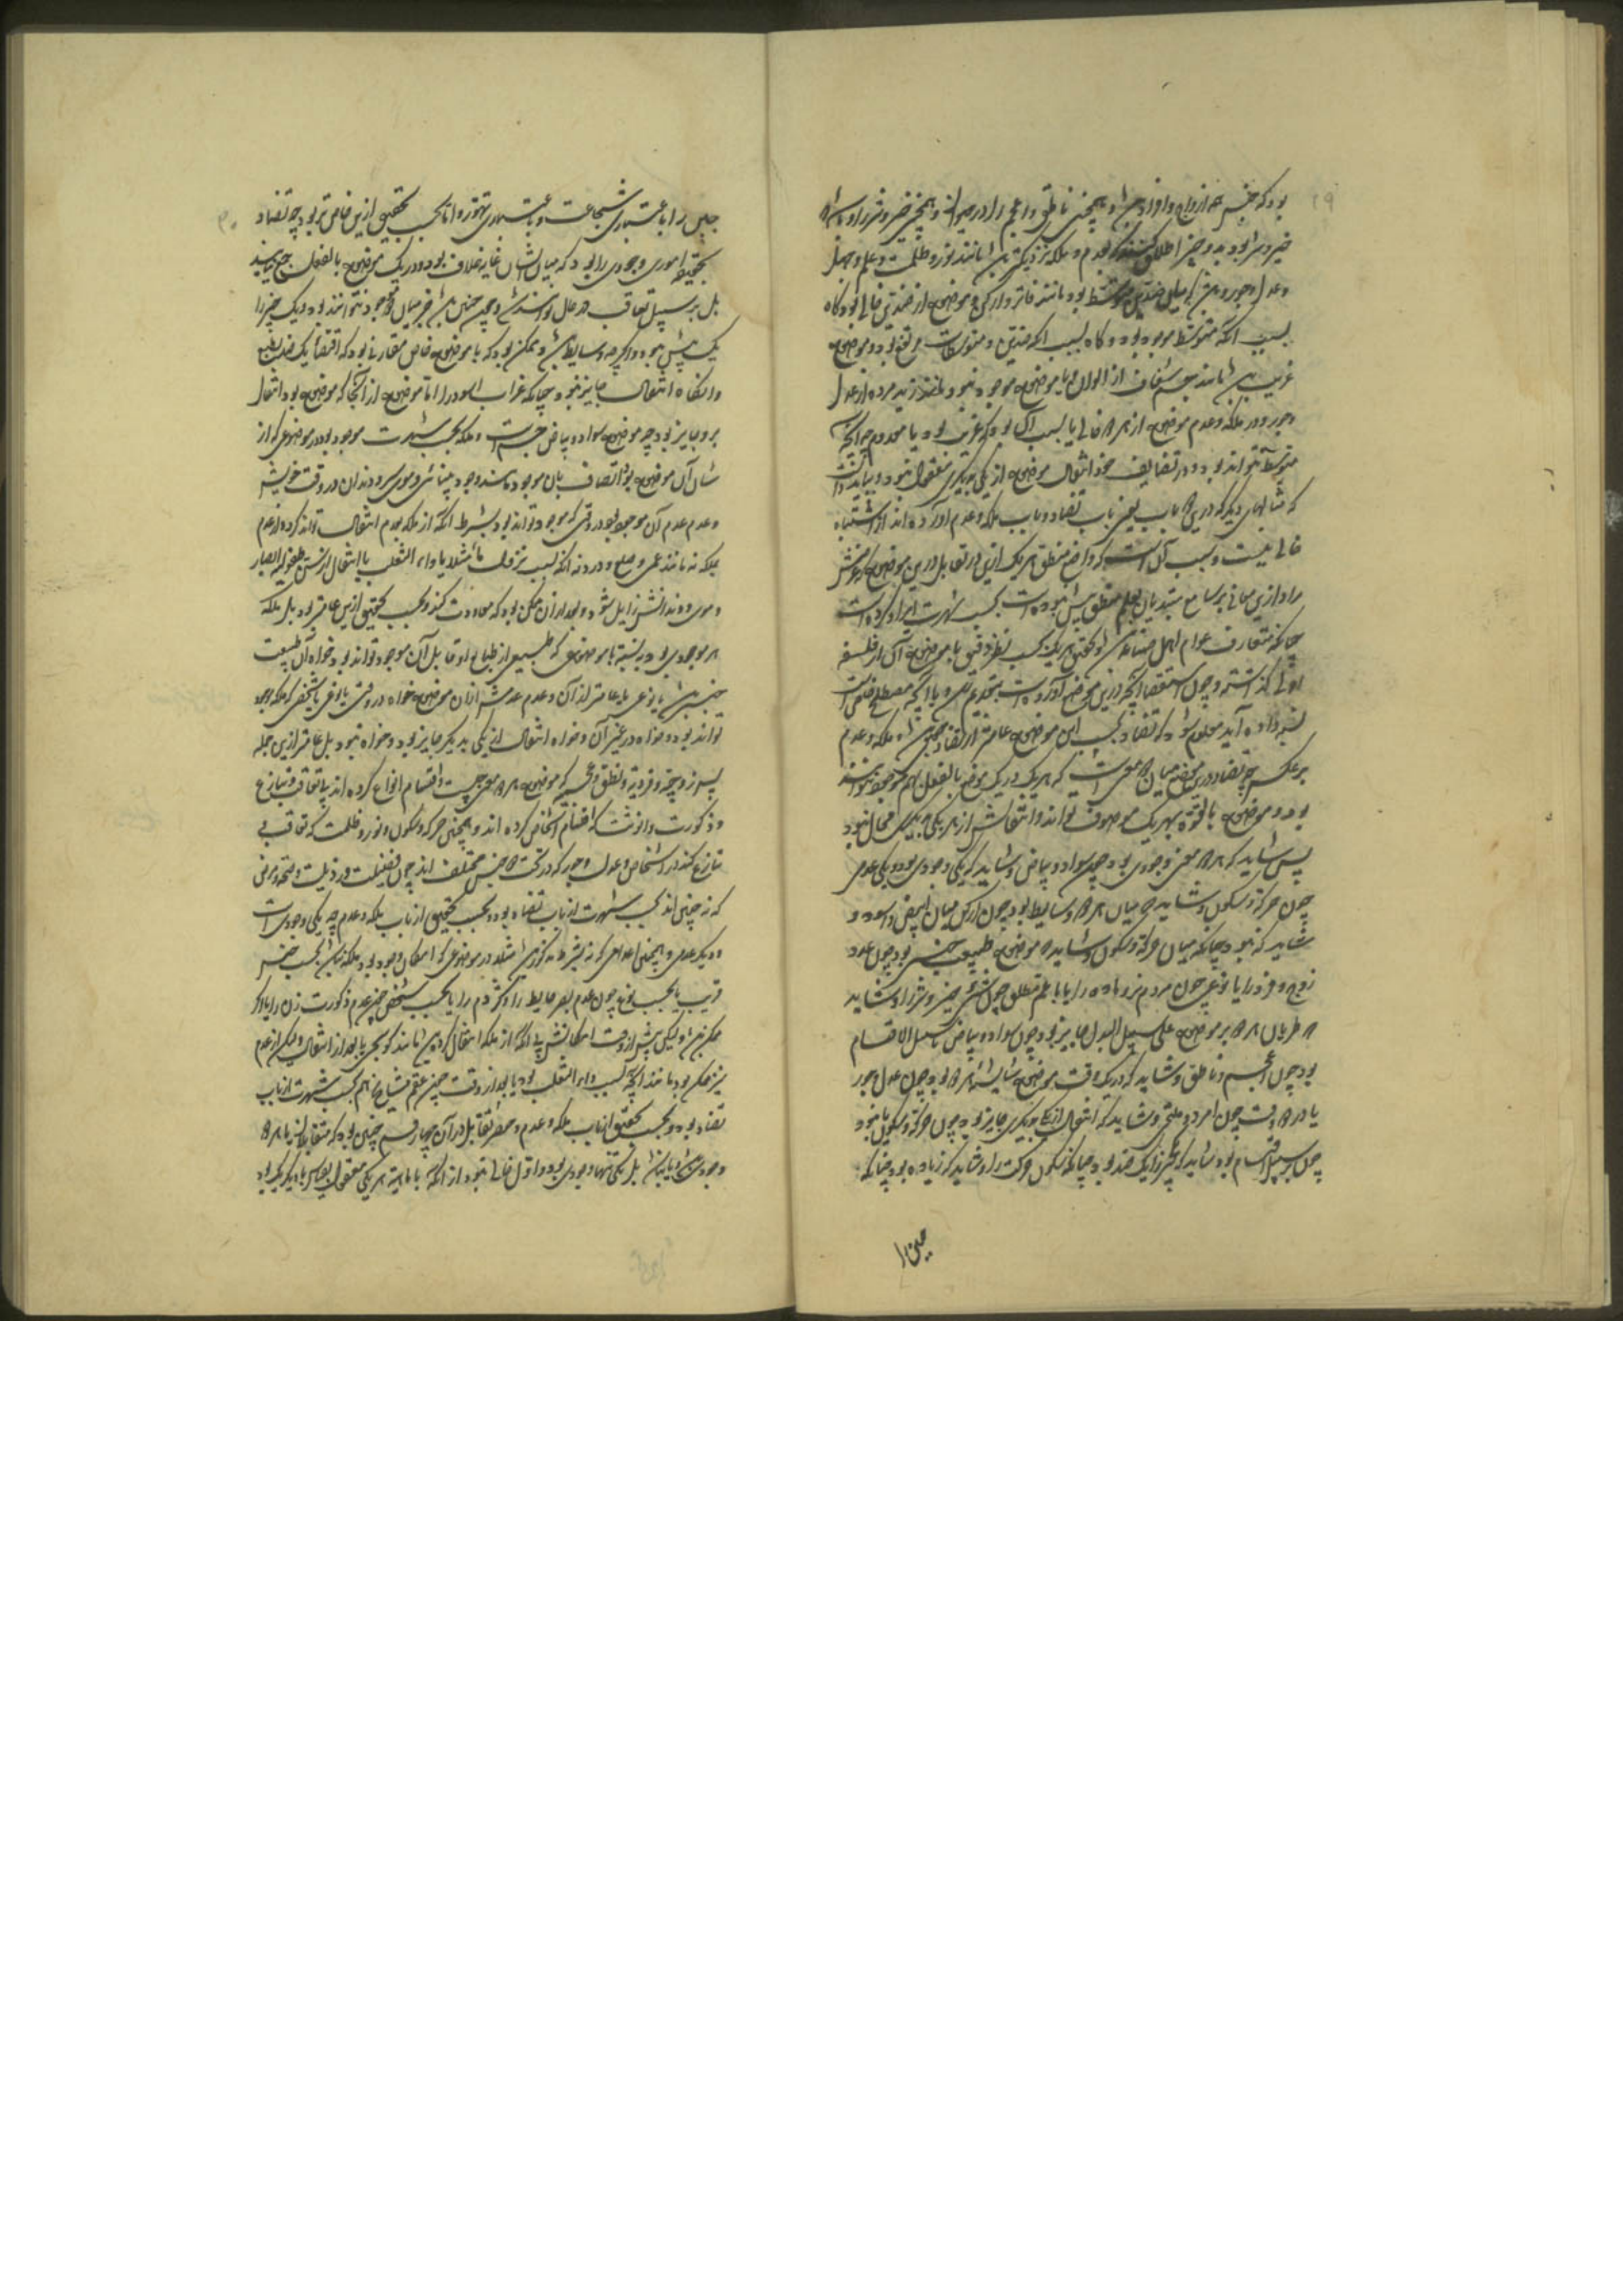 بود که جنس همه ازواج و افراد باشد و همچنین ناطق و اعجم را در حیوان و همچنین خیر و شر را
خیر و شر بود به دو چیز اطلاق کنند که بعدم و ملکه نزدیکتر باشد مانند نور و ظلمت و علم و جهل
و عدل و جور و میان ضدین متوسط بود مانند فاتر و ارکن و موضوع از ضدین خالی بود گاه
بسبب آنکه متوسط موجود بود و گاه بسبب آنکه ضدین و متوسطات مرتفع بود و موضوع
غریب باشد مانند جسم شفاف از الوان و یا موضوع موجود نبود مانند زید مرده از عدل
و جور و در ملکه و عدم موضوع از هر دو خالی یا بسبب آن بود که غریب بود یا معدوم چه آنجا
متوسط نتواند بود و در تضایف خود انتقال موضوع از یکی بدیگری معقول نبود و بباید دانست
که مثالهای دیگر که درین دو باب یعنی باب تضاد و باب ملکه و عدم آورده‌اند از اشتباه
خالی نیست و سبب آن است که واضع منطق هر یک ازین دو تقابل درین موضوع
مراد ازین معانی بر سامع مبتدیان بعلم منطق پیش نبوده است بحسب شهرت ایراد کرده است
چنانکه متعارف عوام اهل صناعت باشد و تحقیق هر یک بحسب نظر دقیق با موضوع آن از فلسفه
اولی گذاشته و چون استقصا آنچه درین موضع آورده است بتقدیم رسد و با آنچه مصطلح خاص است
نسبت داده آید معلوم شود که تضاد بحسب این موضوع عامتر از تضاد حقیقی باشد و ملکه و عدم
برعکس چه تضاد درین موضع میان دو معنی است که هر یک در یک موضوع بالفعل بهم موجود نتوانند
بود و موضوع بالقوه بهر یک موصوف تواند و انتقالش از هر یکی بدیگری محال نبود
پس شاید که هر دو معنی وجودی بود چون سواد و بیاض و شاید که یکی وجودی بود و یکی عدمی
چون حرکت و سکون و شاید که میان هر دو وسایط بود چون ارکن میان ابیض و اسود و
شاید که نبود چنانکه میان حرکت و سکون و شاید که موضوع طبیعت جنسی بود چون عدد
زوج و فرد را یا نوعی چون مردم نر و ماده را یا با علم مطلق چون شیء خیر و شر را و شاید
که طریان هر دو بر موضوع علی سبیل البدل جایز بود چون سواد و بیاض سبیل الاقسام
بود چون اعجم و ناطق و شاید که در یک وقت موضوع شایسته هر دو بود چون عدل و جور
یا در دو وقت چون امرد و ملتحی و شاید که انتقال از یکی بدیگری جایز بود چون حرکت و سکون یا نبود
چون بر سبیل اقسام بود و شاید که یک چیز را یک ضد بود چنانکه سکون حرکت را و شاید که زیاده بود چنانکه
جبن را
جبن را باعتباری شجاعت و باعتباری تهور و اما بحسب تحقیق ازین خاص‌تر بود چه تضاد
بحقیقت اموری وجودی را بود که میان ایشان غایت خلاف بود و در یک موضوع بالفعل جمع نیایند
بل بر سبیل تعاقب در حال توانند شد و چون چنین باشد جز میان دو موجود نتوانند بود و یک چیز را
یک ضد بیش نبود و اگرچه وسایط باشد و ممکن بود که با موضوع خاص مقارنی بود که اقتضاء یک ضد بطبع
و آنگاه انتقال جایز نبود چنانکه غراب اسود را اما موضوع از آنجا که موضوع بود انتقال
بر و جایز بود چه موضوع سواد و بیاض جسم است و ملکه بحسب شهرت موجود بود در موضوعی که از
شان آن موضوع بود اتصاف بان موجود مانند وجود بینائی و موی و دندان در وقت خویش
و عدم عدم آن موجود بود در وقتی که موجود تواند بود بشرط آنکه از ملکه بعدم انتقال تواند کرد و از عدم
بملکه نه مانند عمی و صلع و درد نه آنکه بسبب نزول ماء مثلا یا داء الثعلب یا انتقال از سن طفولیت ابصار
و موی و دندانش زایل شود و بعد از آن ممکن بود که معاودت کند و بحسب تحقیق ازین عامتر بود بل ملکه
هر موجودی بود نسبت با موضوعی که طبیعی از طبایع او قابل آن موجود تواند بود خواه آن طبیعت
جنسی باشد یا نوعی یا عامتر از آن و عدم عدمش از آن موضوع خواه در وقتی یا نوعی یا شخصی که ملکه موجود
تواند بود و خواه در غیر آن و خواه انتقال از یکی بدیگر جایز بود و خواه نبود بل عامتر ازین جمله
پس زوجیت و فردیت و نطق و عجمیت که موضوع هر دو معنی جنس است و اقسام انواع کرده‌اند بی تعاقب و تنازع
و ذکورت و انوثت که اقسام اشخاص کرده‌اند و همچنین حرکت و سکون و نور و ظلمت که تعاقب بی
تنازع کنند در اشخاص و عدل و جور که در تحت دو جنس مختلف‌اند چون فضیلت و رذیلت و صحت و مرض
که نه چنین‌اند بحسب شهرت از باب تضاد بود و بحسب تحقیق از باب ملکه و عدم چه یکی وجودی است
و دیگر عدمی و همچنین اعدامی که نه بشرط مذکور باشد مثلا در موضوعی که امکان وجود بود ملکه نباشد بحسب جنس
قریب یا بحسب نوع چون عدم بصر حایط را و کژدم را یا بحسب شخص چون عدم ذکورت زن را یا اگر
ممکن باشد ولیکن پیش از وقت امکانش بی آنکه از ملکه انتقال کرده باشد مانند کوسج یا بعد از انتقال ولیکن از عدم
نیز ممکن بود مانند آنچه بسبب داء الثعلب بود یا بعد از وقت چون عقم مشایخ هم بحسب شهرت از باب
تضاد بود و بحسب تحقیق از باب ملکه و عدم و حصر تقابل در آن چهار قسم چنین بود که متقابلان یا هر دو
وجودی باشد و یا نباشد بل یکی تنها وجودی بود و اول خالی نبود از آنکه یا ماهیت هر یکی معقول بقیاس با دیگر یک بود